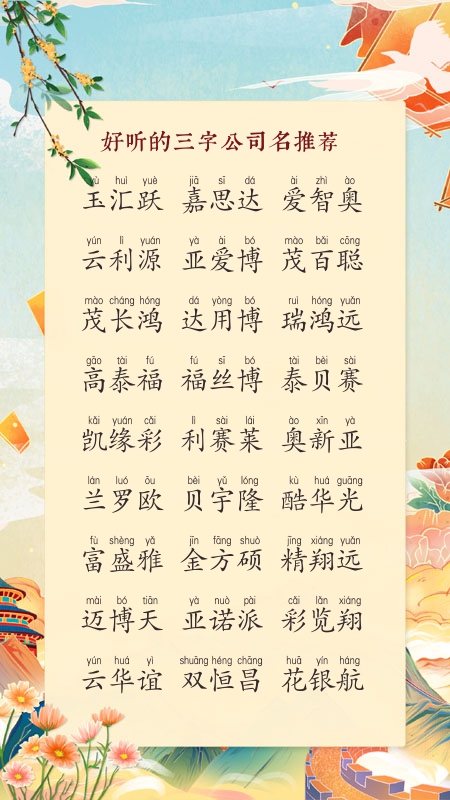 好听的三字公司名推荐
yù huì yuè jiā sī dá ài zhì ào
玉汇跃 嘉思达 爱智奥
yún lì yuán yà ài bó mào bǎi cōng
云利源 亚爱博 茂百聪
mào cháng hóng dá yòng bó ruì hóng yuǎn
茂长鸿 达用博 瑞鸿远
gāo tài fú fú sī bó tài bèi sài
高泰福 福丝博 泰贝赛
kǎi yuán cǎi lì sài lái ào xīn yà
凯缘彩 利赛莱 奥新亚
lán luó ōu bèi yǔ lóng kù huá guāng
兰罗欧 贝宇隆 酷华光
fù shèng yǎ jīn fāng shuò jīng xiáng yuǎn
富盛雅 金方硕 精翔远
mài bó tiān yà nuò pài cǎi lǎn xiáng
迈博天 亚诺派 彩览翔
yún huá yì shuāng héng chāng huā yín háng
云华谊 双恒昌 花银航